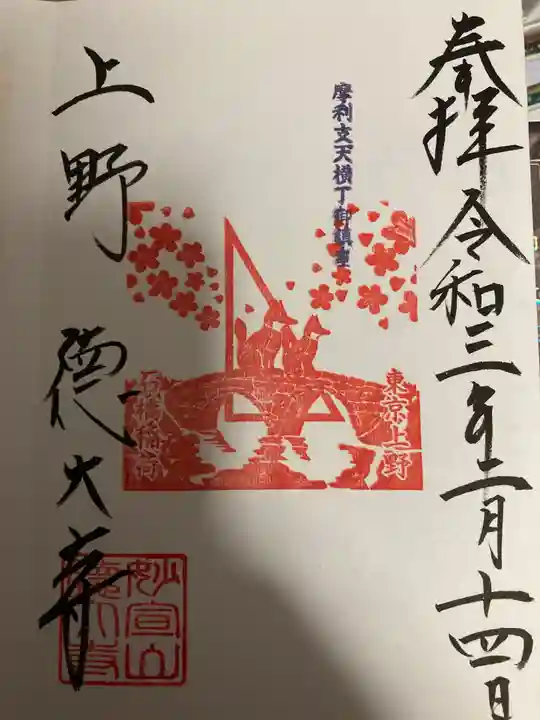 奉拝 令和三年二月十四日
摩利支天横丁御鎮座
東京上野
石橋稲荷
上野 德大寺
妙宣山
德大寺